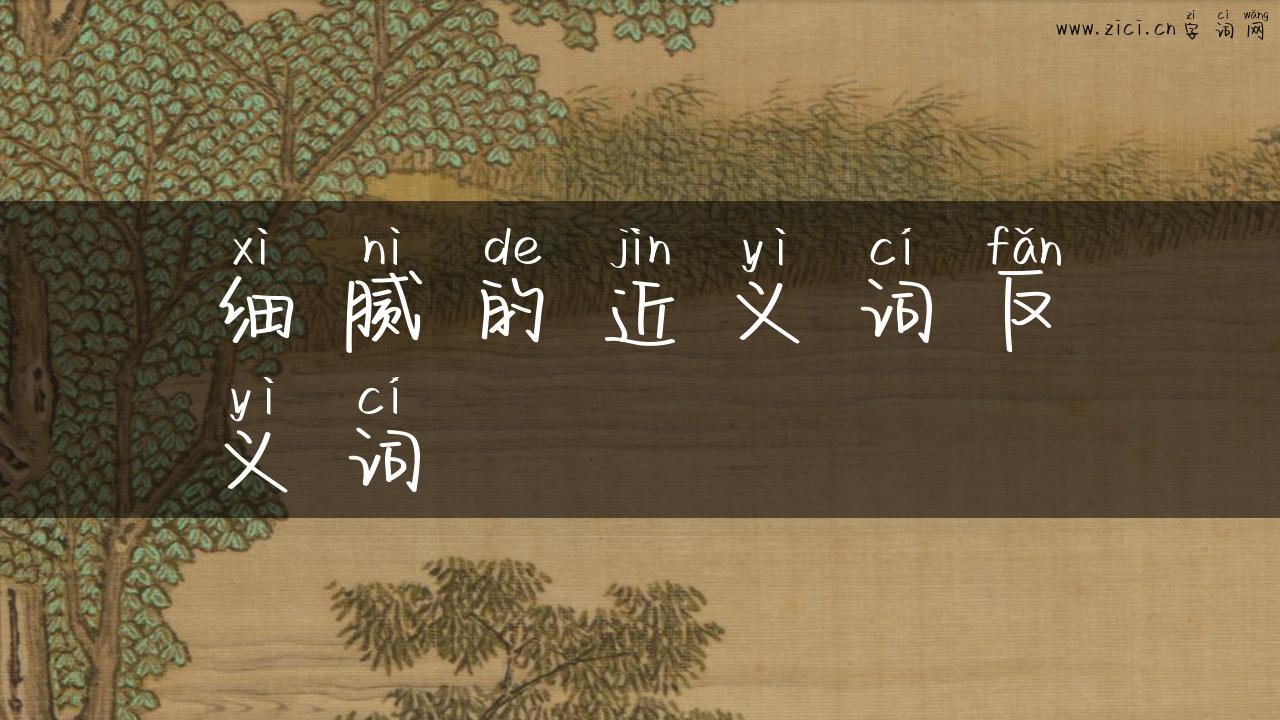 zì cí wǎng
www.zici.cn 字词网
xì nì de jìn yì cí fǎn
细腻的近义词反
yì cí
义词